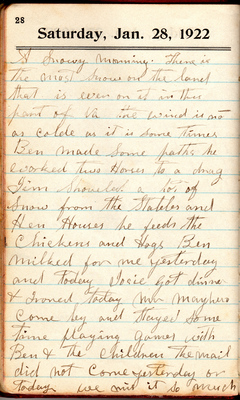 28
Saturday, Jan. 28, 1922
A Snowy morning. There is
the most snow on the land
that is ever on it in this
part of Va the wind is not
as colde as it is some times
Ben made some paths he
worked two Horses to a drag
Jim Shoveled a lot of
snow from the Stables and
Hen Houses he feeds the
Chickens and Hogs Ben
milked for me yesterday
and today Josie got dinner
& Ironed today Mr Mayhew
Come by and stayed some
time playing games with
Ben & the Children the mail
did not come yesterday or
today we miss it so much